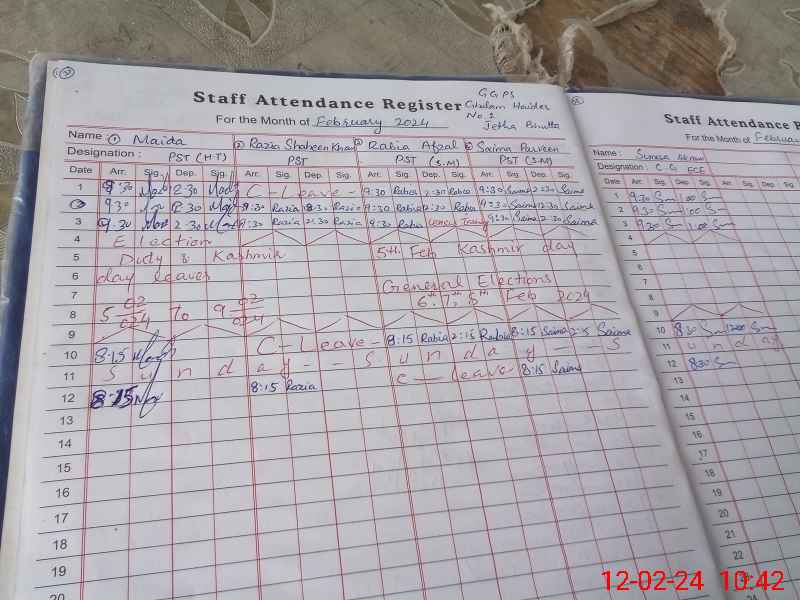 Staff Attendance Register
GGPS
Ghulam Haider
No.1
For the Month of February 2024
Jetha Bhutta
Name ① Maida ② Razia Shaheen Khan ③ Rabia Afzal ④ Saima Parveen
Designation : PST (H.T) PST PST (S.M) PST (S.M)
Date Arr. Sig. Dep. Sig. Arr. Sig. Dep. Sig. Arr. Sig. Dep. Sig. Arr. Sig. Dep. Sig.
1 9:30 2:30 C-Leave - 9:30 Rabia 2:30 Rabia 9:30 Saima 2:30 Saima
2 9:30 2:30 9:30 Razia 2:30 Razia 9:30 Rabia 2:30 Rabia 9:30 Saima 2:30 Saima
3 9:30 2:30 9:30 Razia 2:30 Razia 9:30 Rabia 9:30 Saima 2:30 Saima
4 Election
5 Duty & Kashmir 5th Feb Kashmir day
6 day leaves
7 General Elections
8 5 02 024 to 9 02 024 6th 7th 8th Feb 2024
9
10 8:15 C-Leave - 8:15 Rabia 2:15 Rabia 8:15 Saima 2:15 Saima
11 S u n d a y - - S u n d a y - - S
12 8:15 8:15 Razia C-leave 8:15 Saima
13
14
15
16
17
18
19
20
Staff Attendance R
For the Month of February
Name :
Designation : C.G ECE
Date Arr. Sig. Dep. Sig. Arr. Sig. Dep. Sig.
1 9:30 Sm 1:00 Sm
2 9:30 Sm 1:00 Sm
3 9:30 Sm 1:00 Sm
4
5
6
7
8
9
10 8:30 Sm 12:00 Sm
11 u n d a y
12 8:30 Sm
13
14
15
16
17
18
19
20
21
22
23
12-02-24 10:42